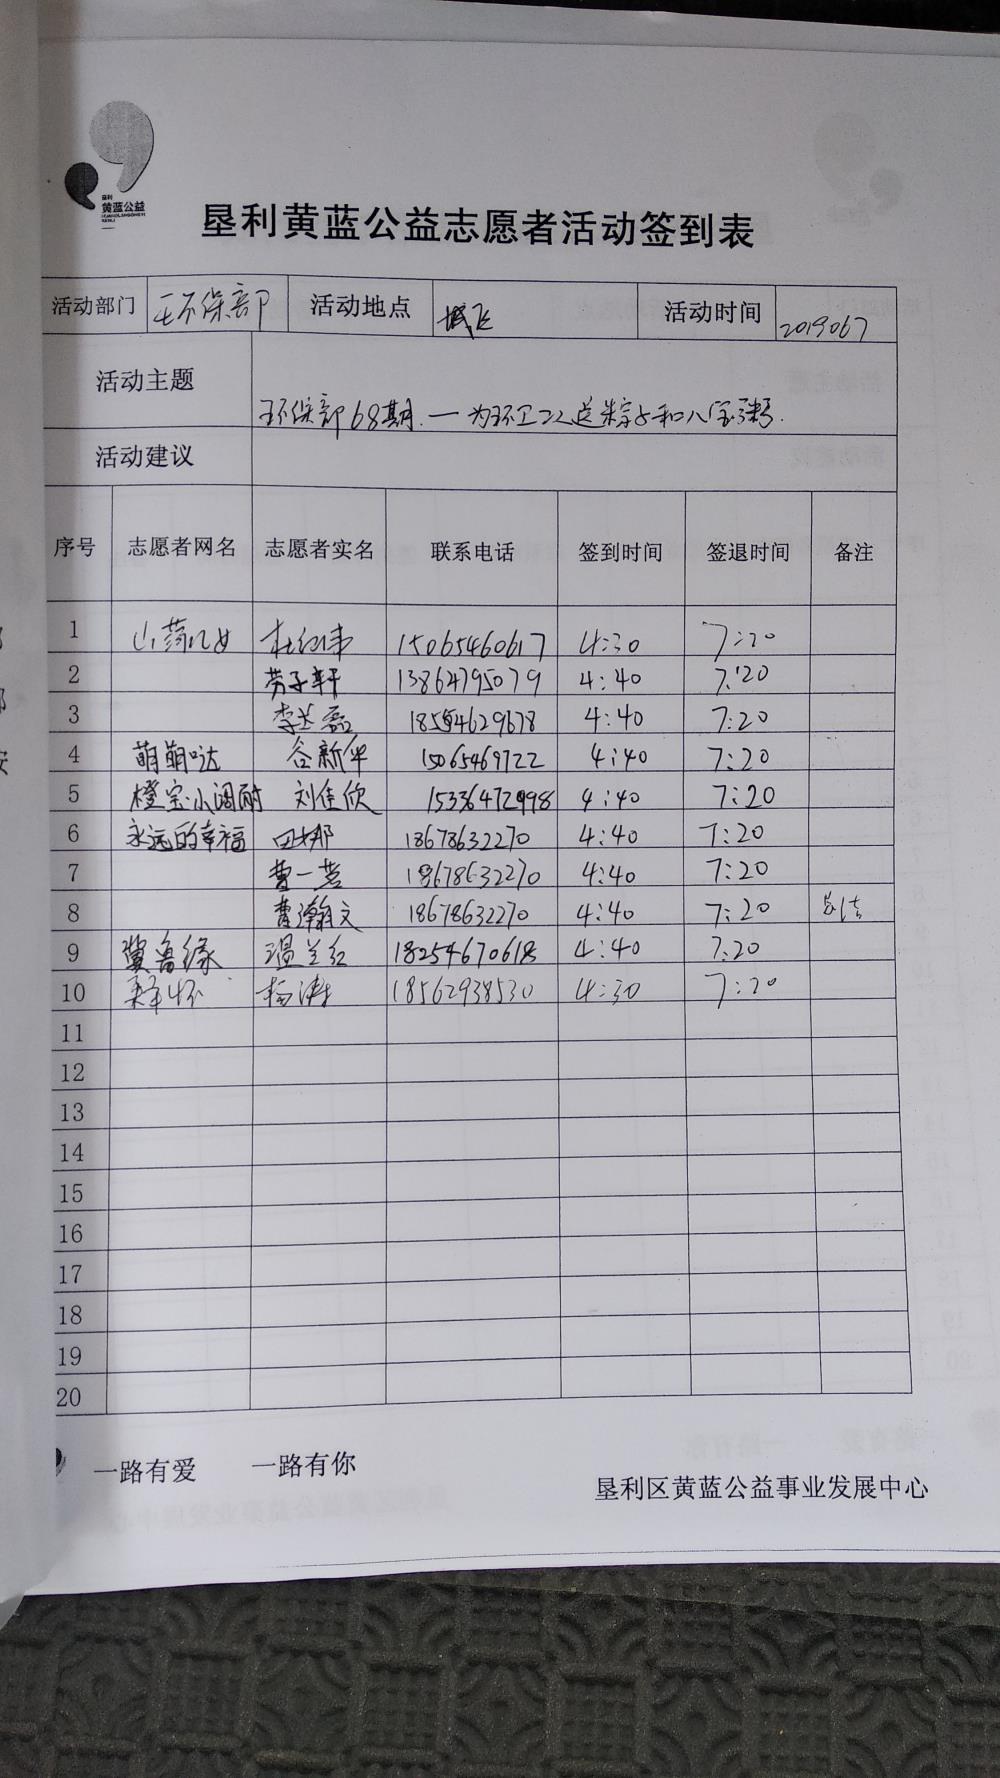 垦利
黄蓝公益
HUANGLANGONGYI
KENLI
垦利黄蓝公益志愿者活动签到表
活动部门 环保部 活动地点 活动时间 2019067
活动主题 环保部68期.一为环卫工人送粽子和八宝粥.
活动建议
序号 志愿者网名 志愿者实名 联系电话 签到时间 签退时间 备注
1 山药儿女 杜红伟 15065460617 4:30 7:20
2 劳子轩 13864795079 4:40 7:20
3 李 磊 18554629678 4:40 7:20
4 萌萌哒 谷新华 15065469722 4:40 7:20
5 橙宝小阔耐 刘佳欣 15336472998 4:40 7:20
6 永远的幸福 田娜 18678632270 4:40 7:20
7 曹一 18678632270 4:40 7:20
8 曹瀚文 18678632270 4:40 7:20
9 冀鲁缘 温兰红 18254670618 4:40 7:20
10 杨涛 18562938530 4:30 7:20
11
12
13
14
15
16
17
18
19
20
一路有爱 一路有你
垦利区黄蓝公益事业发展中心